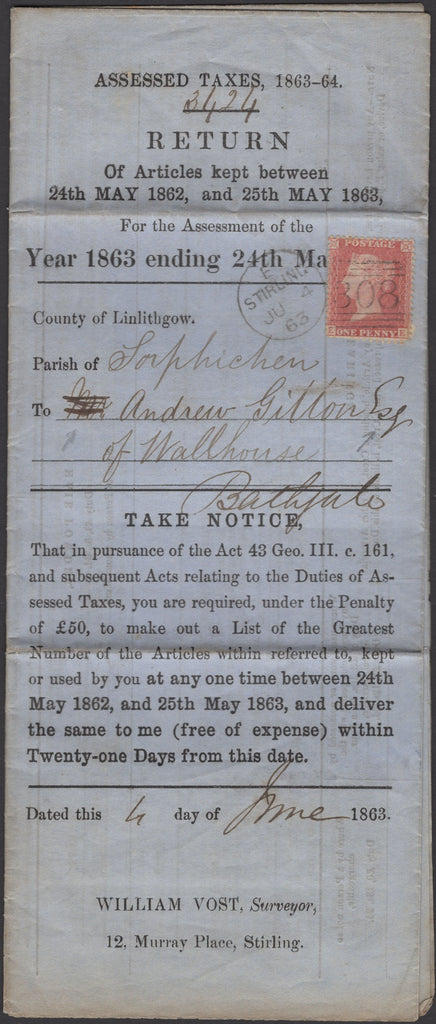 ASSESSED TAXES, 1863-64.
3424
RETURN
Of Articles kept between
24th MAY 1862, and 25th MAY 1863,
For the Assessment of the
Year 1863 ending 24th Ma
POSTAGE
308
ONE PENNY
E
STIRLING
JU 4
63
County of Linlithgow.
Parish of Torphichen
To Mr Andrew Gitton Esq
of Wallhouse
Bathgate
TAKE NOTICE,
That in pursuance of the Act 43 Geo. III. c. 161,
and subsequent Acts relating to the Duties of As-
sessed Taxes, you are required, under the Penalty
of £50, to make out a List of the Greatest
Number of the Articles within referred to, kept
or used by you at any one time between 24th
May 1862, and 25th May 1863, and deliver
the same to me (free of expense) within
Twenty-one Days from this date.
Dated this 4 day of June 1863.
WILLIAM VOST, Surveyor,
12, Murray Place, Stirling.